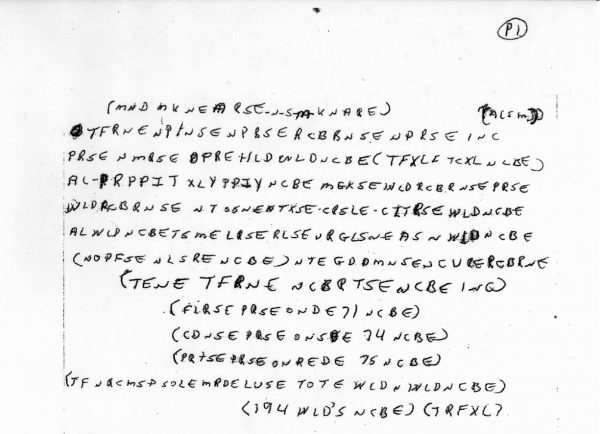 P1
(MND MKNEARSE-N-S-M-KNARE) (ACSM)
TFRNENPINSENPBSERCBBNSENPRSEINC
PRSENMRSEOPREHLDWLDNCBE(TFXLFTCXLNCBE)
AL-PRPPITXLYPPIYNCBEMEKSEWLDRCBRNSEPRSE
WLDRCBRNSENTOSNENTXSE-CRSLE-CITRSEWLDNCBE
ALWLDNCBETSMELRSERLSEURGLSNEASNWLDNCBE
(NOPFSENLSRENCBE)NTEGDDMNSENCURERCBRNE
(TENETFRNENCBRTSENCBEING)
(FLRSEPRSEONDE71NCBE)
(CDNSEPRSEONSDE74NCBE)
(PRTSEPRSEONREDE75NCBE)
(TFNRCMSPSOLEMRDELUSETOTEWLDNWLDNCBE)
(194WLD'SNCBE)(TRFXL)